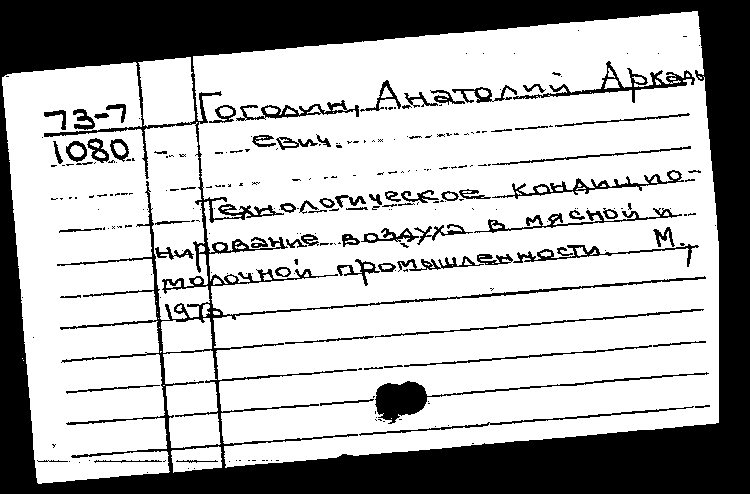 73-7
1080
Гоголин, Анатолий Аркадь
евич.
Технологическое кондицио-
нирование воздуха в мясной и
молочной промышленности. М.,